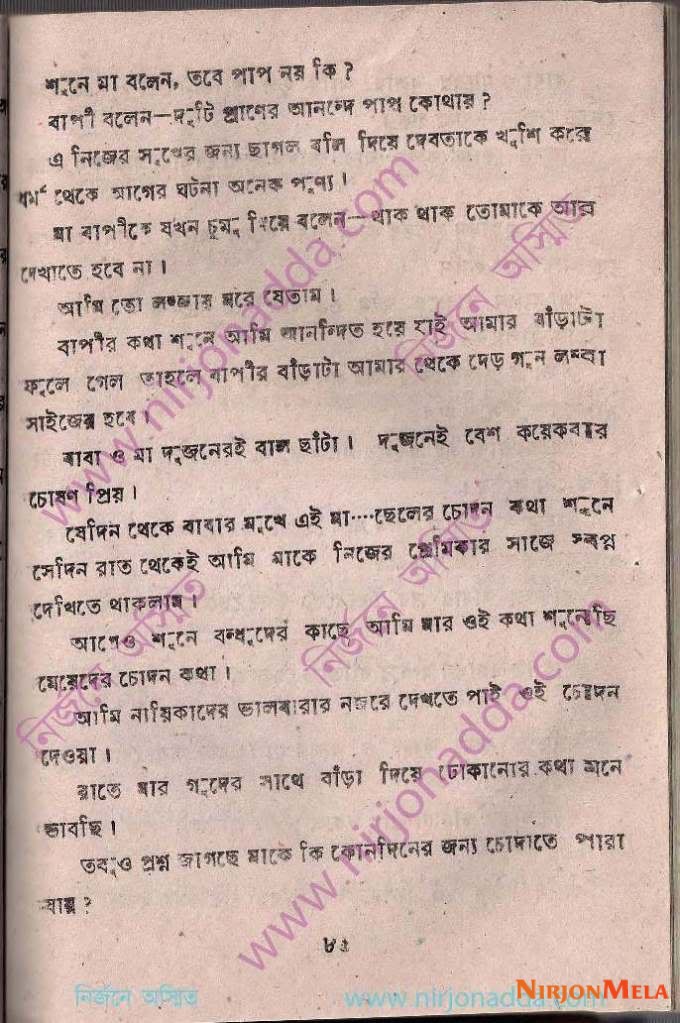 শুনে মা বলেন, তবে পাপ নয় কি?
বাপী বলেন—দুটি প্রাণের আনন্দে পাপ কোথায়?
এ নিজের সুখের জন্য ছাগল বলি দিয়ে দেবতাকে খুশি করে
ধর্ম থেকে আগের ঘটনা অনেক পুণ্য।
মা বাপীকে যখন চুমু দিয়ে বলেন—থাক থাক তোমাকে আর
দেখাতে হবে না।
আমি তো লজ্জায় মরে যেতাম।
বাপীর কথা শুনে আমি আনন্দিত হয়ে যাই আমার বাঁড়াটা
ফুলে গেল তাহলে বাপীর বাঁড়াটা আমার থেকে দেড় গুন লম্বা
সাইজের হবে।
বাবা ও মা দুজনেরই বাল ছাঁটা। দুজনেই বেশ কয়েকবার
চোষণ প্রিয়।
যেদিন থেকে বাবার মুখে এই মা....ছেলের চোদন কথা শুনে
সেদিন রাত থেকেই আমি মাকে নিজের প্রেমিকার সাজে স্বপ্ন
দেখিতে থাকলাম।
আগেও শুনে বন্ধুদের কাছে আমি মার ওই কথা শুনেছি
মেয়েদের চোদন কথা।
আমি নায়িকাদের ভালবারার নজরে দেখতে পাই ওই চোদন
দেওয়া।
রাতে মার গুদের সাথে বাঁড়া দিয়ে ঢোকানোর কথা শুনে
ভাবছি।
তবুও প্রশ্ন জাগছে মাকে কি কোনদিনের জন্য চোদাতে পারা
যায়?
নির্জনে অস্মিত
www.nirjonadda.com
NIRJONMELA